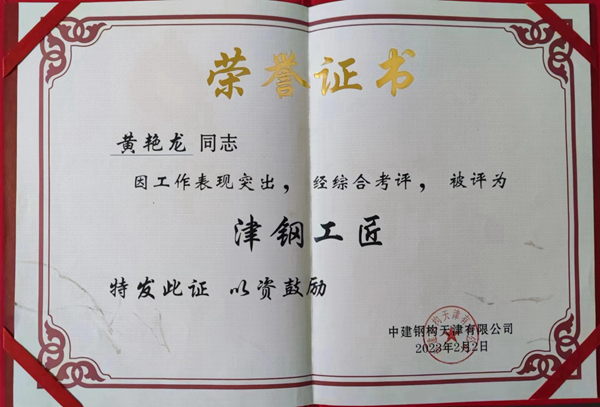 荣誉证书
黄艳龙 同志
因工作表现突出，经综合考评，被评为
津钢工匠
特发此证 以资鼓励
中建钢构天津有限公司
2023年2月2日